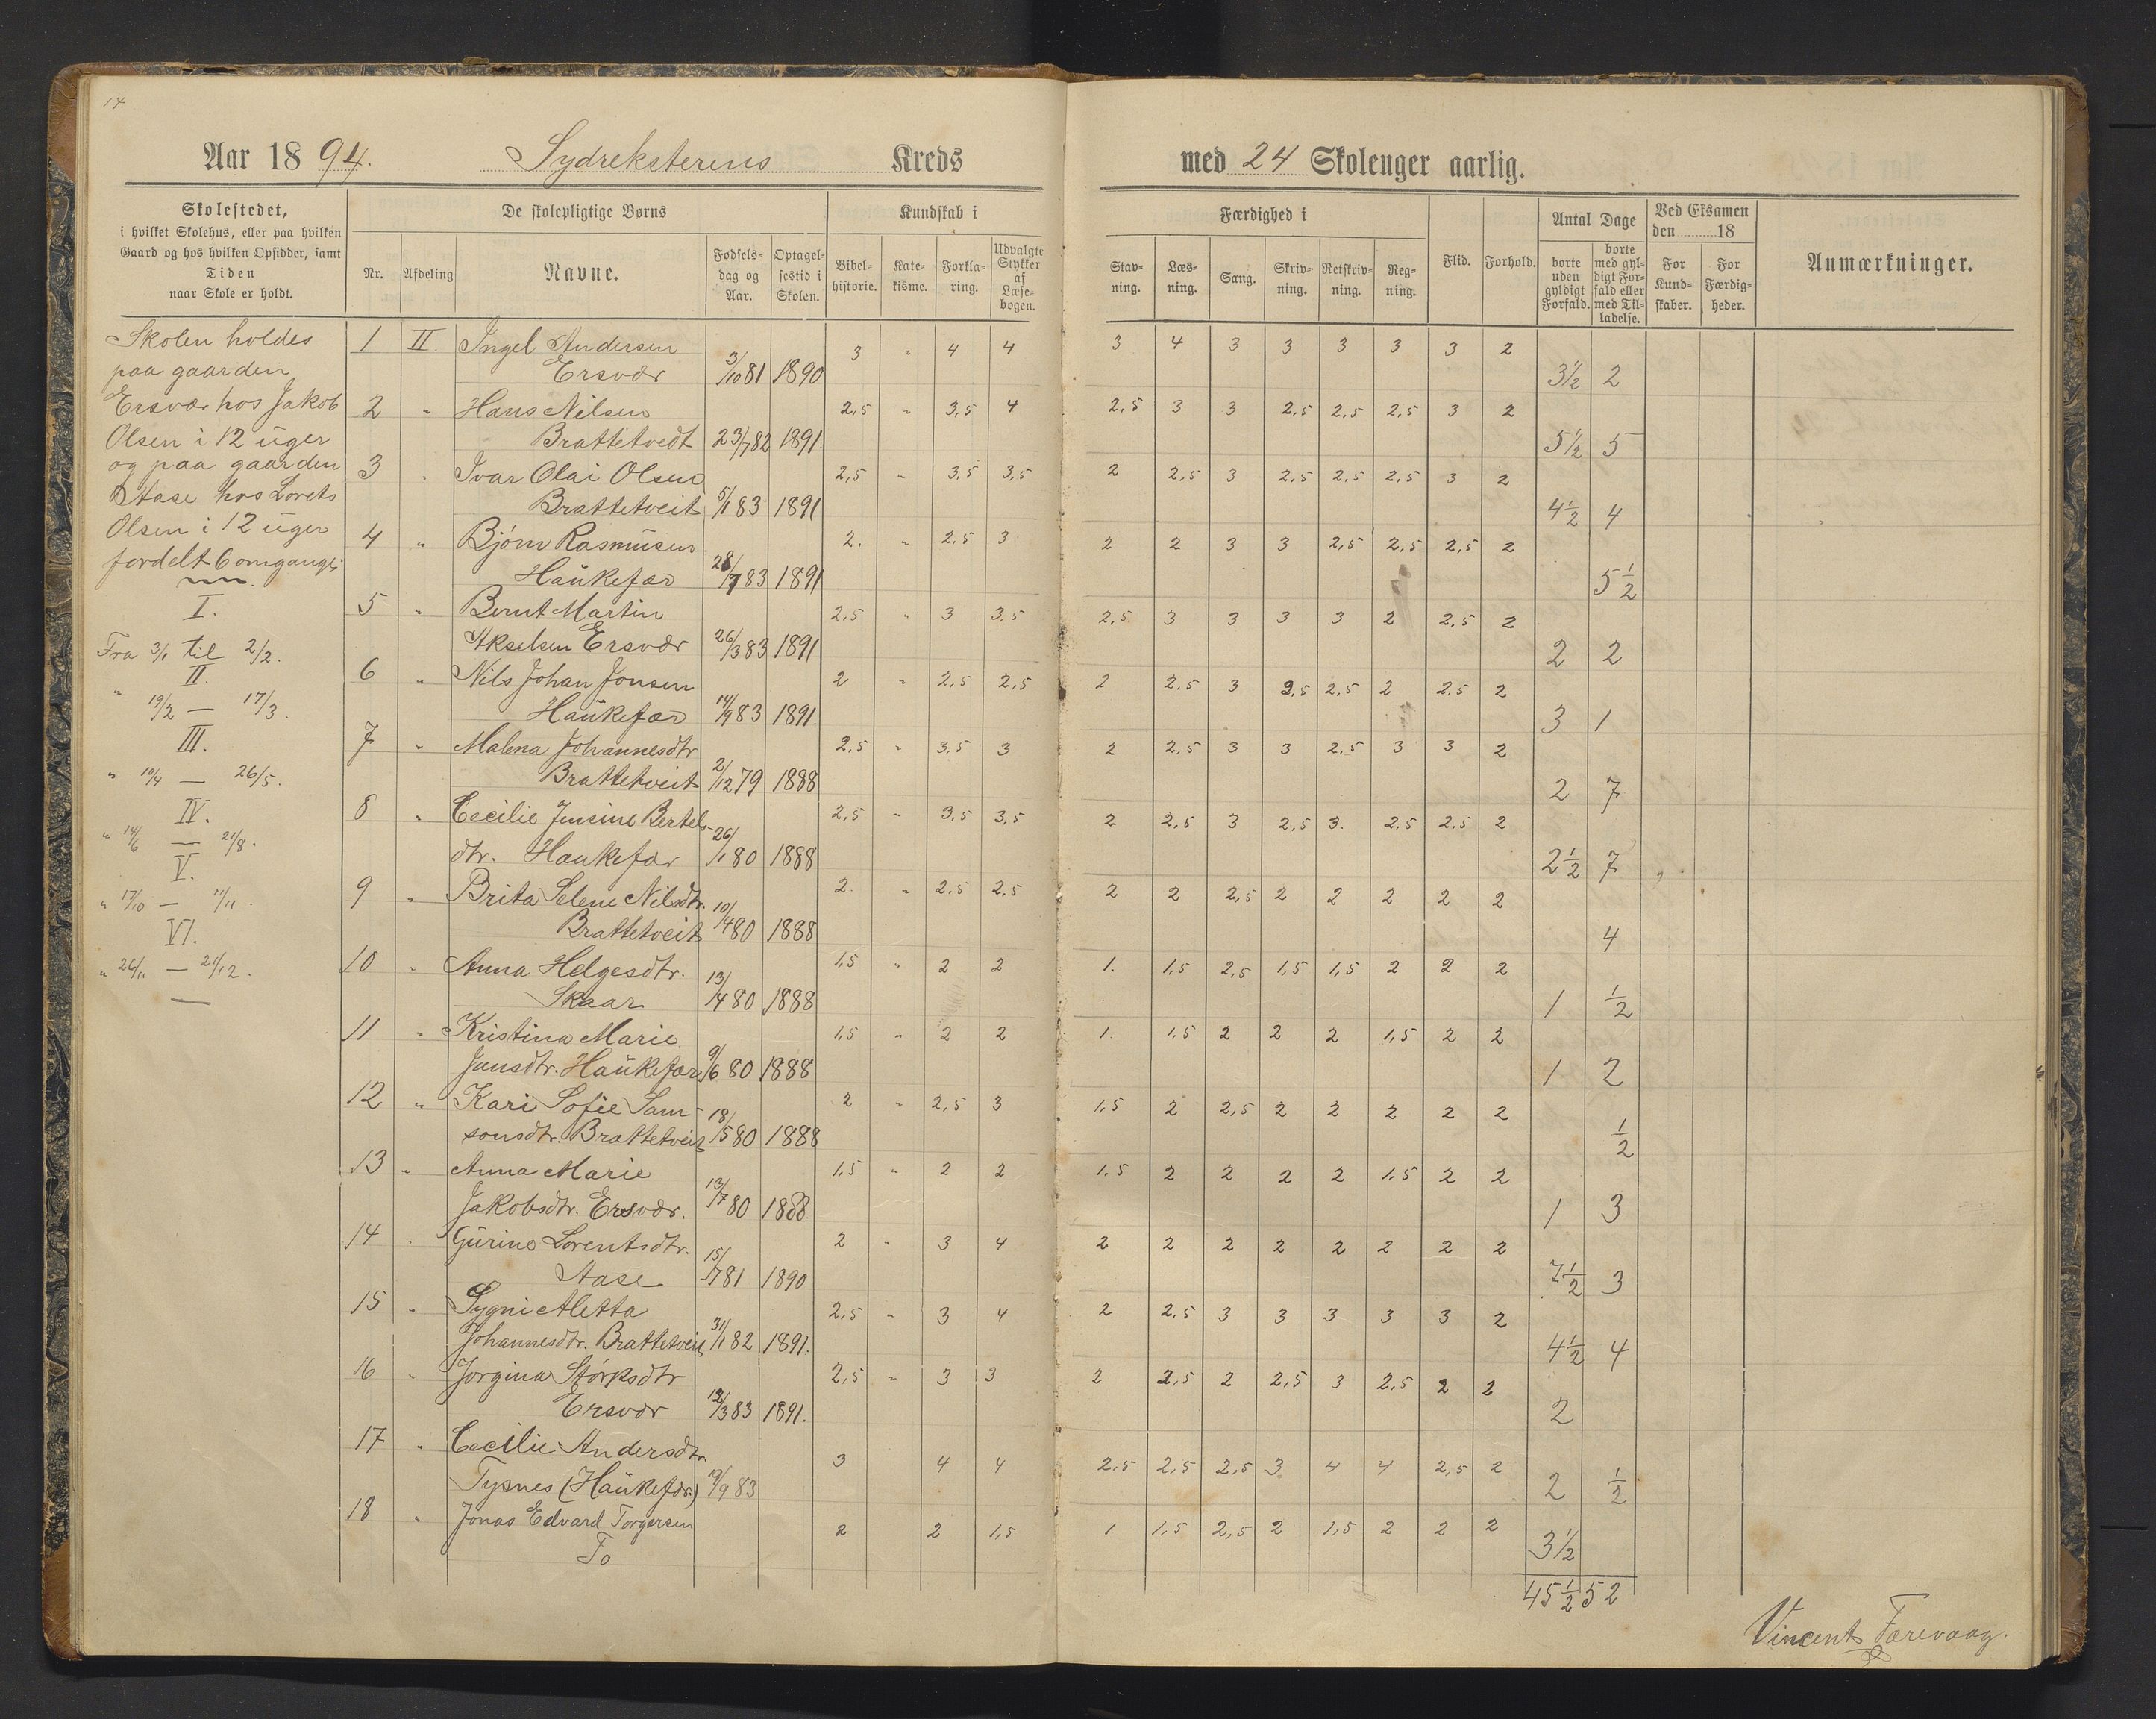 14.
Aar 1894. Sydreksterens Kreds
med 24 Skolenger aarlig.
Skolestedet,
i hvilket Skolehus, eller paa hvilken
Gaard og hos hvilken Opsidder, samt
Tiden
naar Skole er holdt.
De skolepligtige Børns
Nr.
Afdeling
Navne.
Fødsels-
dag og
Aar.
Optagel-
sestid i
Skolen.
Kundskab i
Bibel-
historie.
Kate-
kisme.
Forkla-
ring.
Udvalgte
Stykker
af
Læse-
bogen.
Færdighed i
Stav-
ning.
Læs-
ning.
Sang.
Skriv-
ning.
Retskriv-
ning.
Reg-
ning.
Flid.
Forhold.
Antal Dage
borte
uden
gyldigt
Forfald.
borte
med gyl-
digt For-
fald eller
med Til-
ladelse.
Ved Eksamen
den 18
For
Kund-
skaber.
For
Færdig-
heder.
Anmærkninger.
Skolen holdes
paa gaarden
Ersvær hos Jakob
Olsen i 12 uger
og paa gaarden
Aase hos Lorets
Olsen i 12 uger
fordelt 6 omgange:
I.
Fra 3/1 til 2/2.
II.
" 19/2 — 17/3.
III.
" 10/4 — 26/5.
IV.
" 14/6 — 21/8.
V.
" 17/10 — 11/11.
VI.
" 26/11 — 21/12.
1 II. Ingel Andersen 3 " 4 4 3 4 3 3 3 3 3 2
Ersvær 3/10 81 1890 3½ 2
2 " Hans Nilsen 2,5 " 3,5 4 2,5 3 3 2,5 2,5 2,5 3 2
Brattetvedt 23/7 82 1891. 5½ 5
3 " Ivar Olai Olsen 2,5 " 3,5 3,5 2 2,5 3 2,5 2,5 2,5 3 2
Brattetveit 5/1 83 1891 4½ 4
4 " Bjørn Rasmusen 2. " 2.5 3 2 2 3 3 2,5 2,5 2,5 2
Haukefær 28/7 83 1891 5½
5 " Bernt Martin 2,5 " 3 3,5 2,5. 3 3 3 3 2 2,5 2
Akselsen Ersvær 26/3 83 1891 2 2
6 " Nils Johan Jonsen 2 " 2,5 2,5 2 2,5 3 2,5 2,5 2 2,5 2
Haukefær 14/9 83 1891. 3 1
7 " Malena Johannesdtr 2,5 " 3,5 3 2 2,5 3 3 2,5 3 3 2
Brattetveit 2/12 79 1888 2 7
8 " Cecilie Jensine Bertels- 2,5 " 3,5 3,5 2 2,5 3 2,5 3. 2,5 2,5 2
dtr. Haukefær 26/1 80 1888 2½ 7
9 " Brita Selene Nilsdtr. 2. " 2,5 2,5 2 2 2,5 2 2 2 2 2
Brattetveit 10/4 80 1888 4
10 " Anna Helgesdtr. 1,5 " 2 2 1. 1,5 2,5 1,5 1,5 2 2 2
Skaar 13/4 80 1888 1 ½
11 " Kristina Marie 1,5 " 2 2 1. 1,5 2 2 2 1,5 2 2
Jansdtr. Haukefær 9/6 80 1888 1 2
12 " Kari Sofie Sam- 2 " 2,5 3 1,5 2 2,5 2 2 2 2 2
sonsdtr. Brattetveit 18/5 80 1888 ½
13 " Anna Marie 1,5 " 2 2 1.5 2 2 2 2 1,5 2 2
Jakobsdtr. Ersvær. 13/7 80 1888. 1 3
14 " Gurine Lorentsdtr. 2 " 3 4 2 2 2 2 2 2 2 2
Aase 15/7 81 1890 7½ 3
15 " Sygni Aletta 2,5 " 3 4 2 2,5 3 3 3 3 3 2
Johannesdtr. Brattetveit 31/1 82 1891. 4½ 4
16 " Jorgina Størksdtr 2,5 " 3 3 2 2,5 2 2,5 3 2,5 2 2
Ersvær 12/3 83 1891. 2
17 " Cecilie Andersdtr. 3 4 4 2,5 2,5 2,5 3 4 4 2,5 2
Tysnes (Haukefær) 19/9 83 2 ½
18 " Jonas Edvard Torgersen 2 2 1,5 1 1,5 2,5 2 1,5 2 2 2
To 3½
45½ 52
Vincents Farevaag.